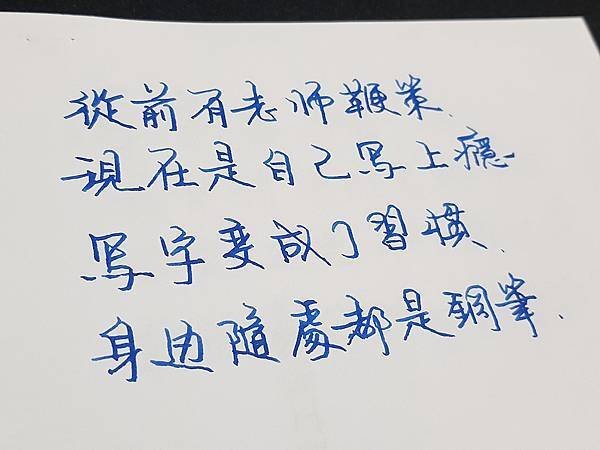 從前有老师鞭策.
現在是自己写上癮.
写字变成了習慣.
身边隨處都是鋼筆.